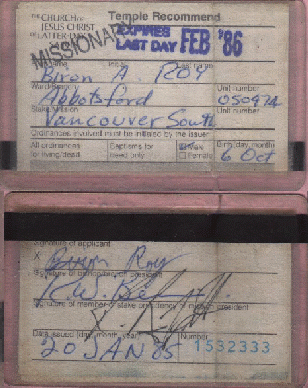 THE CHURCH OF
JESUS CHRIST
OF LATTER-DAY
Temple Recommend
MISSIONARY
EXPIRES
LAST DAY FEB '86
Biron A ROY
Unit number
Abbotsford 050974
Unit number
Vancouver South
Ordinances involved must be initialed by the issuer
All ordinances
for living/dead
Baptisms for
dead only
Male
Female
Birth (day, month)
6 Oct
Signature of applicant
X Biron Roy
Signature of bishop/branch president
Signature of member of stake presidency or mission president
Date issued (day, month, year)
Number
20 JAN 85
1532333